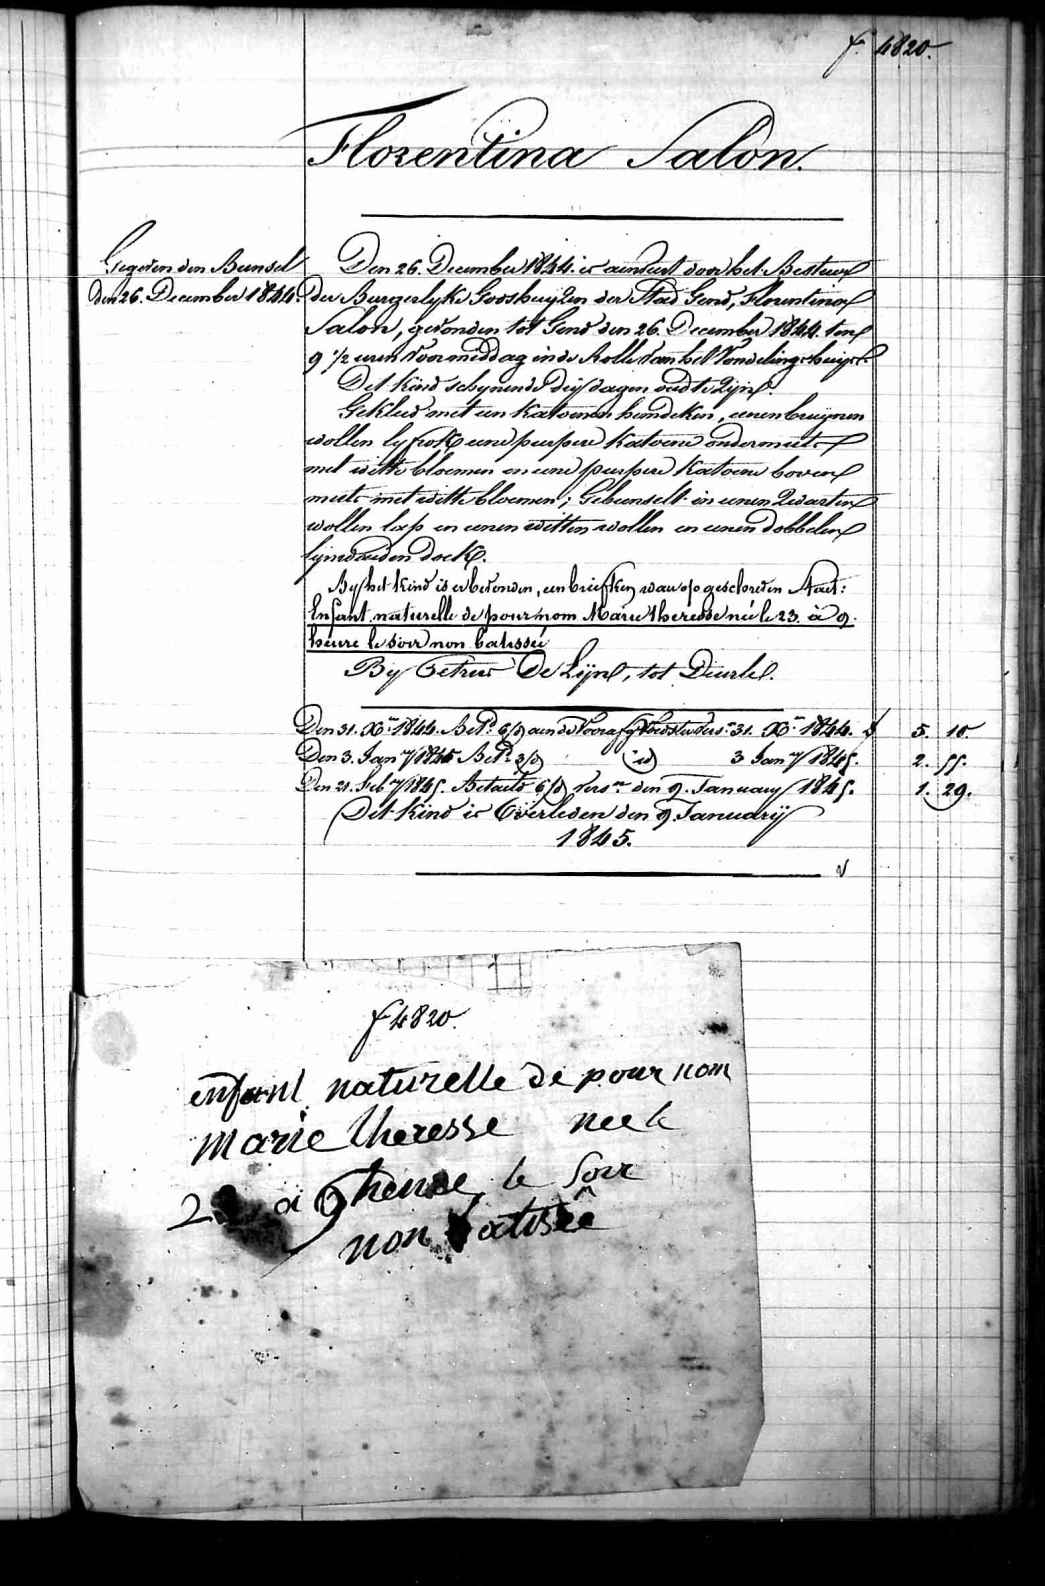 f. 4820.
Florentina Salon.
Gegeven den Bunsel
den 26. December 1844.
Den 26. December 1844. is aenveert door het Bestuur
der Burgerlyke Godshuyzen der Stad Gend, Florentina
Salon, gevonden tot Gend den 26. December 1844. ten
9 1/2 uren voormiddag in de Rolle van het Vondelingshuys.
Dit kind schynende dry dagen oud te zyn.
Gekleed met een katoenen hemdeken, eenen bruynen
wollen lyfrok eene purpere katoene ondermuts
met witte bloemen en eene purpere katoene boven
muts met witte bloemen; Gebunselt in eenen zwarten
wollen lap en eenen witten wollen en eenen dobbelen
lynwaeden doek.
By het kind is er bevonden, een briefken waer op geschreven staet:
Enfant naturelle de pour nom Marie theresse née le 23. à 9.
heure le soir non batissée
By Petrus De Lyn, tot Deurle.
Den 31. Xbr 1844. Betd. aen de Voorafg. Voedster vers. 31. Xbr 1844. 5. 10.
Den 3. Jany 1845 Betd. id 3 Jany 1845. 2. 55.
Den 21. Feby 1845. Betaeld vers. den 9. January 1845. 1. 29.
Dit kind is Overleden den 9. January
1845.
f 4820.
enfant naturelle de pour nom
marie theresse nee le
23 a 9 heure le soir
non batisée